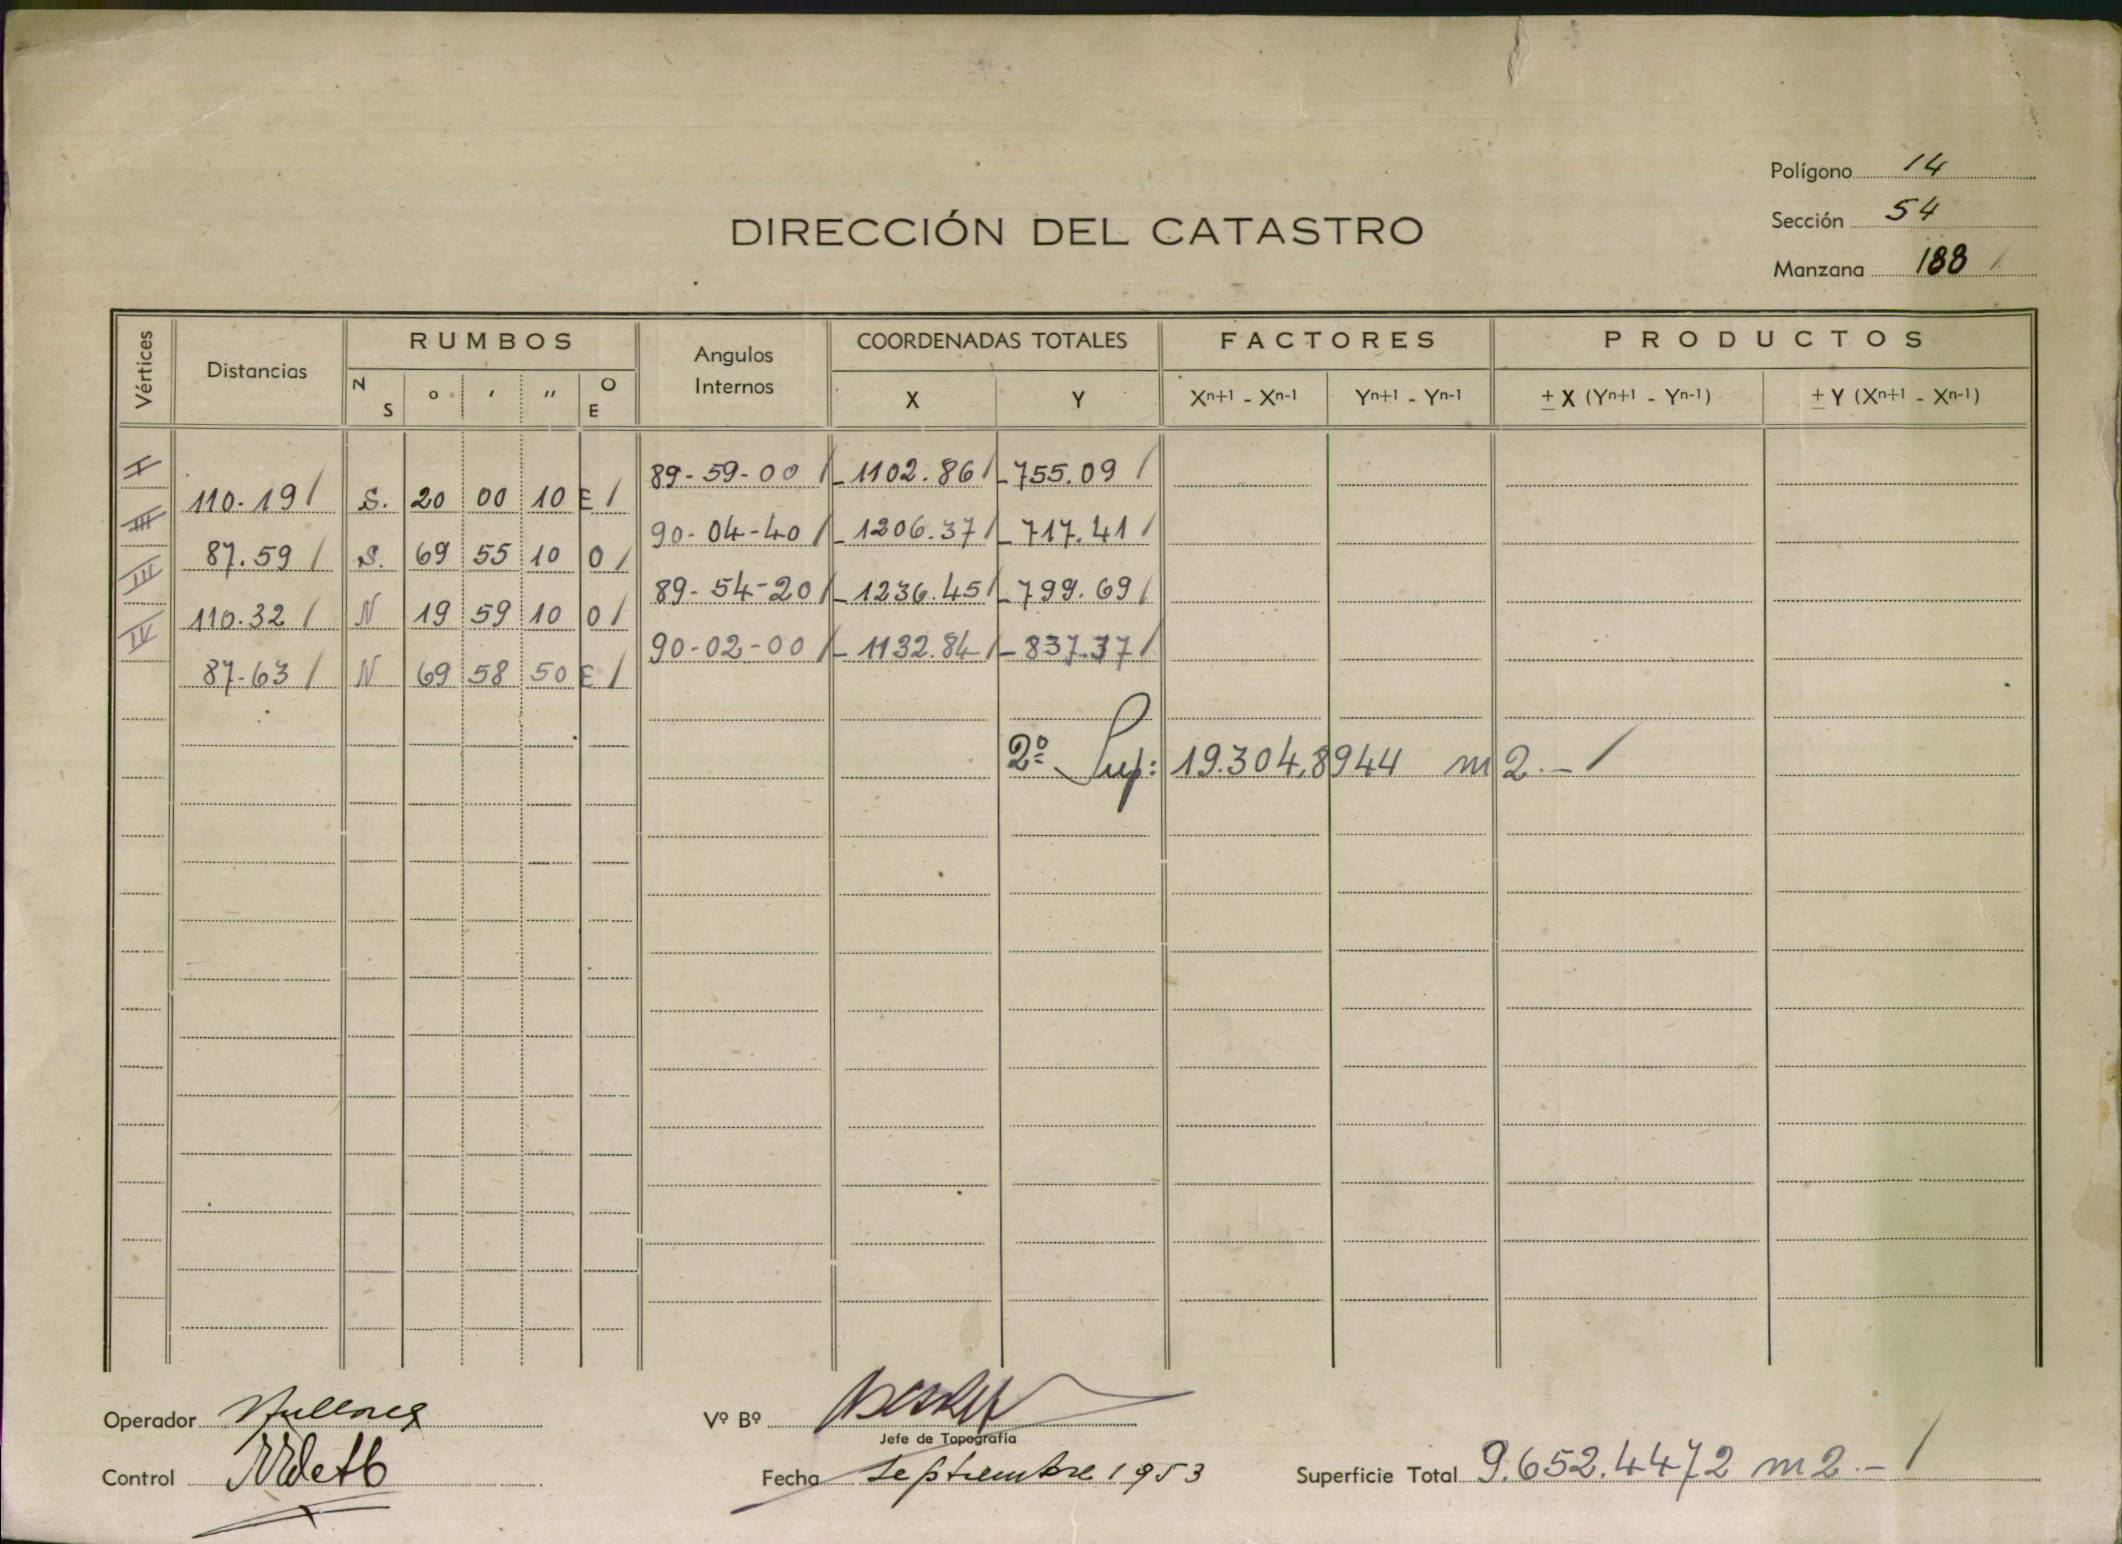 Polígono 14
Sección 54
Manzana 188
DIRECCIÓN DEL CATASTRO
Vértices Distancias RUMBOS Angulos Internos COORDENADAS TOTALES FACTORES PRODUCTOS
N S ° ′ ″ O E X Y Xn+1 - Xn-1 Yn+1 - Yn-1 ± X (Yn+1 - Yn-1) ± Y (Xn+1 - Xn-1)
I 89-59-00 / -1102.86 / -755.09 /
110.19 / S. 20 00 10 E /
90-04-40 / -1206.37 / -717.41 /
87.59 / S. 69 55 10 O /
III 89-54-20 / -1236.45 / -799.69 /
110.32 / N 19 59 10 O /
IV 90-02-00 / -1132.84 / -837.37 /
87-63 / N 69 58 50 E /
2º Sup: 19.304,8944 m2.- /
Operador
Vº Bº
Jefe de Topografía
Control
Fecha Septiembre 1953
Superficie Total 9.652.4472 m2.- /